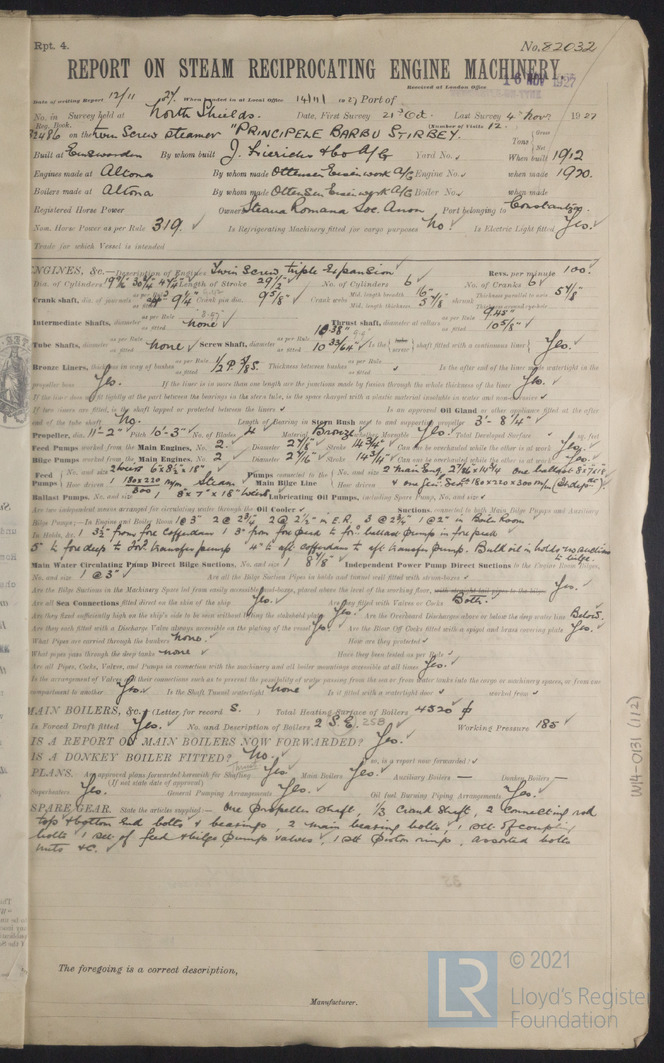 Rpt. 4. No. 82032
REPORT ON STEAM RECIPROCATING ENGINE MACHINERY.
Received at London Office 16 NOV 1927
Date of writing Report 12/11 27. When handed in at Local Office 14/11/ 1927 Port of
No. in Survey held at North Shields. Date, First Survey 21st Oct. Last Survey 4th Nov. 1927
Reg. Book. (Number of Visits 12.
32486 on the Twin Screw Steamer "PRINCIPELE BARBU STIRBEY. Gross
Tons
Net
Built at By whom built & Co A/G Yard No. When built 1912
Engines made at Altona By whom made A/G Engine No. when made 1920.
Boilers made at Altona By whom made A/G Boiler No. when made
Registered Horse Power Owners Steaua Romana Soc. Anon. Port belonging to Constantza.
Nom. Horse Power as per Rule 319. Is Refrigerating Machinery fitted for cargo purposes No. Is Electric Light fitted Yes.
Trade for which Vessel is intended
ENGINES, &c.—Description of Engines Twin Screw, triple expansion Revs. per minute 100.
Dia. of Cylinders Length of Stroke 29 1/2" No. of Cylinders 6 No. of Cranks 6
Crank shaft, dia. of journals as per Rule as fitted 9 1/4" Crank pin dia. 9 5/8" Crank webs Mid. length breadth 16" Mid. length thickness 5 7/8" shrunk Thickness parallel to axis 5 7/8" Thickness around eye-hole
Intermediate Shafts, diameter as per Rule as fitted none Thrust shaft, diameter at collars as per Rule 9.45" as fitted 10 5/8"
Tube Shafts, diameter as per Rule as fitted none Screw Shaft, diameter as per Rule as fitted 10 33/64" Is the screw shaft fitted with a continuous liner Yes.
Bronze Liners, thickness in way of bushes as per Rule as fitted Thickness between bushes as per Rule as fitted Is the after end of the liner made watertight in the
propeller boss Yes. If the liner is in more than one length are the junctions made by fusion through the whole thickness of the liner Yes.
If the liner does not fit tightly at the part between the bearings in the stern tube, is the space charged with a plastic material insoluble in water and non-corrosive
If two liners are fitted, is the shaft lapped or protected between the liners Is an approved Oil Gland or other appliance fitted at the after
end of the tube shaft No. Length of Bearing in Stern Bush next to and supporting propeller 3'- 8 1/4"
Propeller, dia. 11'-2" Pitch 10'-3" No. of Blades 4 Material Bronze whether Moveable Yes. Total Developed Surface sq. feet
Feed Pumps worked from the Main Engines, No. 2. Diameter 2 7/16" Stroke 14 3/4" Can one be overhauled while the other is at work Yes.
Bilge Pumps worked from the Main Engines, No. 2 Diameter 2 7/16" Stroke 14 3/4" Can one be overhauled while the other is at work Yes.
Feed Pumps No. and size 2 Weirs 6"x8 1/2"x18" How driven Steam Pumps connected to the Main Bilge Line No. and size 2 main Eng. 2 7/16x14 3/4 one ballast How driven & one Gen. Serv. 180x220x300 m/m
Ballast Pumps, No. and size 1 8"x7"x18" Weirs Lubricating Oil Pumps, including Spare Pump, No. and size
Are two independent means arranged for circulating water through the Oil Cooler Suctions, connected to both Main Bilge Pumps and Auxiliary
Bilge Pumps;—In Engine and Boiler Room 1@3" 2@2 3/4" 2@2 1/2" in E.R. 3@2 3/4" 1@2" in Boiler Room
In Holds, &c. 1 3 1/2" from fore cofferdam 1 3" from fore peak to for'd ballast pump in fore peak
5" to fore deep to for'd transfer pump 4" to aft. cofferdam to aft transfer pump. Bulk oil in holds no suctions to bilge.
Main Water Circulating Pump Direct Bilge Suctions, No. and size 1 8 1/8" Independent Power Pump Direct Suctions to the Engine Room Bilges,
No. and size 1 @ 3" Are all the Bilge Suction Pipes in holds and tunnel well fitted with strum-boxes
Are the Bilge Suctions in the Machinery Space led from easily accessible mud-boxes, placed above the level of the working floor, Yes.
Are all Sea Connections fitted direct on the skin of the ship Yes. Are they fitted with Valves or Cocks Both.
Are they fixed sufficiently high on the ship's side to be seen without lifting the stokehold plates Yes. Are the Overboard Discharges above or below the deep water line Below.
Are they each fitted with a Discharge Valve always accessible on the plating of the vessel Yes. Are the Blow Off Cocks fitted with a spigot and brass covering plate Yes.
What Pipes are carried through the bunkers none. How are they protected
What pipes pass through the deep tanks none Have they been tested as per Rule
Are all Pipes, Cocks, Valves, and Pumps in connection with the machinery and all boiler mountings accessible at all times Yes.
Is the arrangement of Valves and their connections such as to prevent the possibility of water passing from the sea or from water tanks into the cargo or machinery spaces, or from one
compartment to another Yes. Is the Shaft Tunnel watertight none Is it fitted with a watertight door worked from
MAIN BOILERS, &c.—(Letter for record S.) Total Heating Surface of Boilers 4320
Is Forced Draft fitted Yes. No. and Description of Boilers 2 S.E. 2SB Working Pressure 185
IS A REPORT ON MAIN BOILERS NOW FORWARDED? Yes.
IS A DONKEY BOILER FITTED? No. If so, is a report now forwarded?
PLANS. Are approved plans forwarded herewith for Shafting Yes Main Boilers Yes. Auxiliary Boilers — Donkey Boilers —
(If not state date of approval)
Superheaters Yes. General Pumping Arrangements Yes. Oil fuel Burning Piping Arrangements Yes.
SPARE GEAR. State the articles supplied:— One propeller shaft, 1/3 crank shaft, 2 connecting rod
top & bottom end bolts & bearings, 2 main bearing bolts, 1 set of coupling
bolts 1 set of feed & bilge pump valves, 1 set piston rings, assorted bolts
nuts &c.
The foregoing is a correct description,
Manufacturer.
W14-0131 (1/2)
LR
© 2021
Lloyd's Register
Foundation